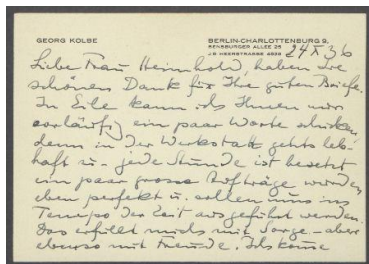 GEORG KOLBE
BERLIN-CHARLOTTENBURG 9,
SENSBURGER ALLEE 25
J 9 HEERSTRASSE 4039
24 X 36
Liebe Frau Heimhold, haben Sie
schönen Dank für Ihre guten Briefe.
In Eile kann ich Ihnen nur
vorläufig ein paar Worte schicken,
denn in der Werkstatt gehts leb-
haft u. jede Stunde ist besetzt
ein paar grosse Aufträge wurden
eben perfekt u. sollen nun ins
Tempo der Zeit ausgeführt werden.
Das erfüllt mich mit Sorge – aber
ebenso mit Freude. Ich